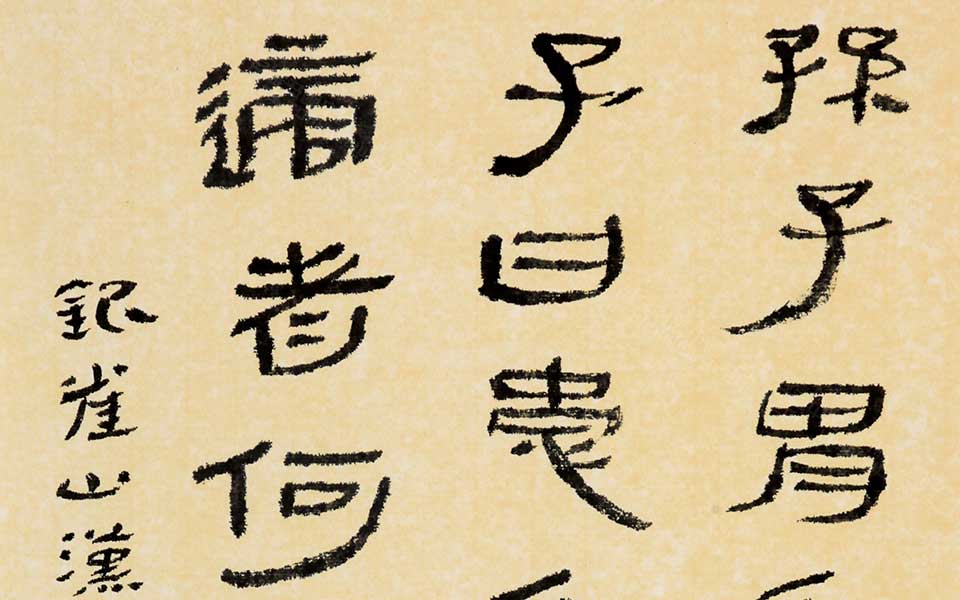 孫子胃
子曰患
適者何
銀雀山漢